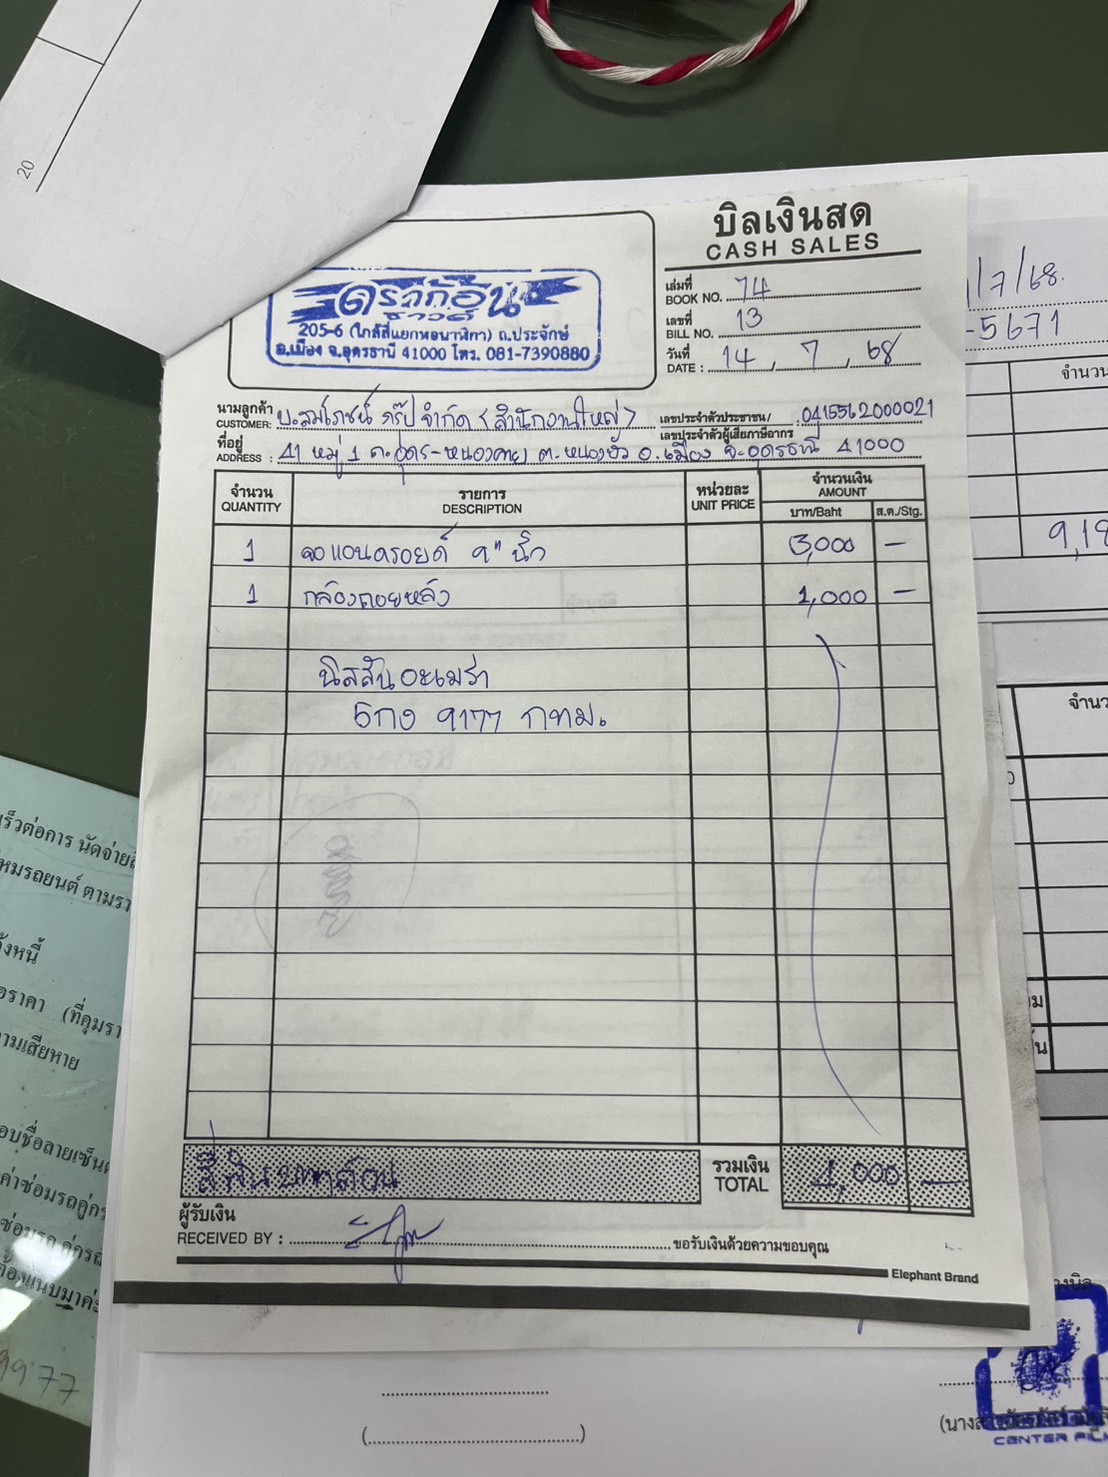 20
บิลเงินสด
CASH SALES
ดราก้อน
ซาวด์
205-6 (ใกล้สี่แยกหอนาฬิกา) ถ.ประจักษ์
อ.เมือง จ.อุดรธานี 41000 โทร. 081-7390880
เล่มที่
BOOK NO. 74
เลขที่
BILL NO. 13
วันที่
DATE : 14 , 7 , 68
/7/68.
-5671
นามลูกค้า
CUSTOMER: บ.สมโภชน์ กรุ๊ป จำกัด (สำนักงานใหญ่)
เลขประจำตัวประชาชน/
เลขประจำตัวผู้เสียภาษีอากร : 0415562000021
ที่อยู่
ADDRESS : 41 หมู่ 1 ถ.อุดร-หนองคาย ต.หนองบัว อ.เมือง จ.อุดรธานี 41000
จำนวน
QUANTITY
รายการ
DESCRIPTION
หน่วยละ
UNIT PRICE
จำนวนเงิน
AMOUNT
บาท/Baht ส.ต./Stg.
1 จอแอนดรอยด์ 9" นิ้ว 3,000 —
1 กล้องถอยหลัง 1,000 —
นิสสัน อะเมร่า
5กง 9177 กทม.
สี่พันบาทถ้วน
รวมเงิน
TOTAL 4,000 —
ผู้รับเงิน
RECEIVED BY : ขอรับเงินด้วยความขอบคุณ
Elephant Brand
จำนวน
9,18
จำนว
เร็วต่อการ นัดจ่าย
ไหมรถยนต์ ตามรา
อราคา (ที่คุมรา
ามเสียหาย
อบชื่อลายเซ็น
ค่าซ่อมรถคู่กร
99.77
(นางสา
CENTER FIL